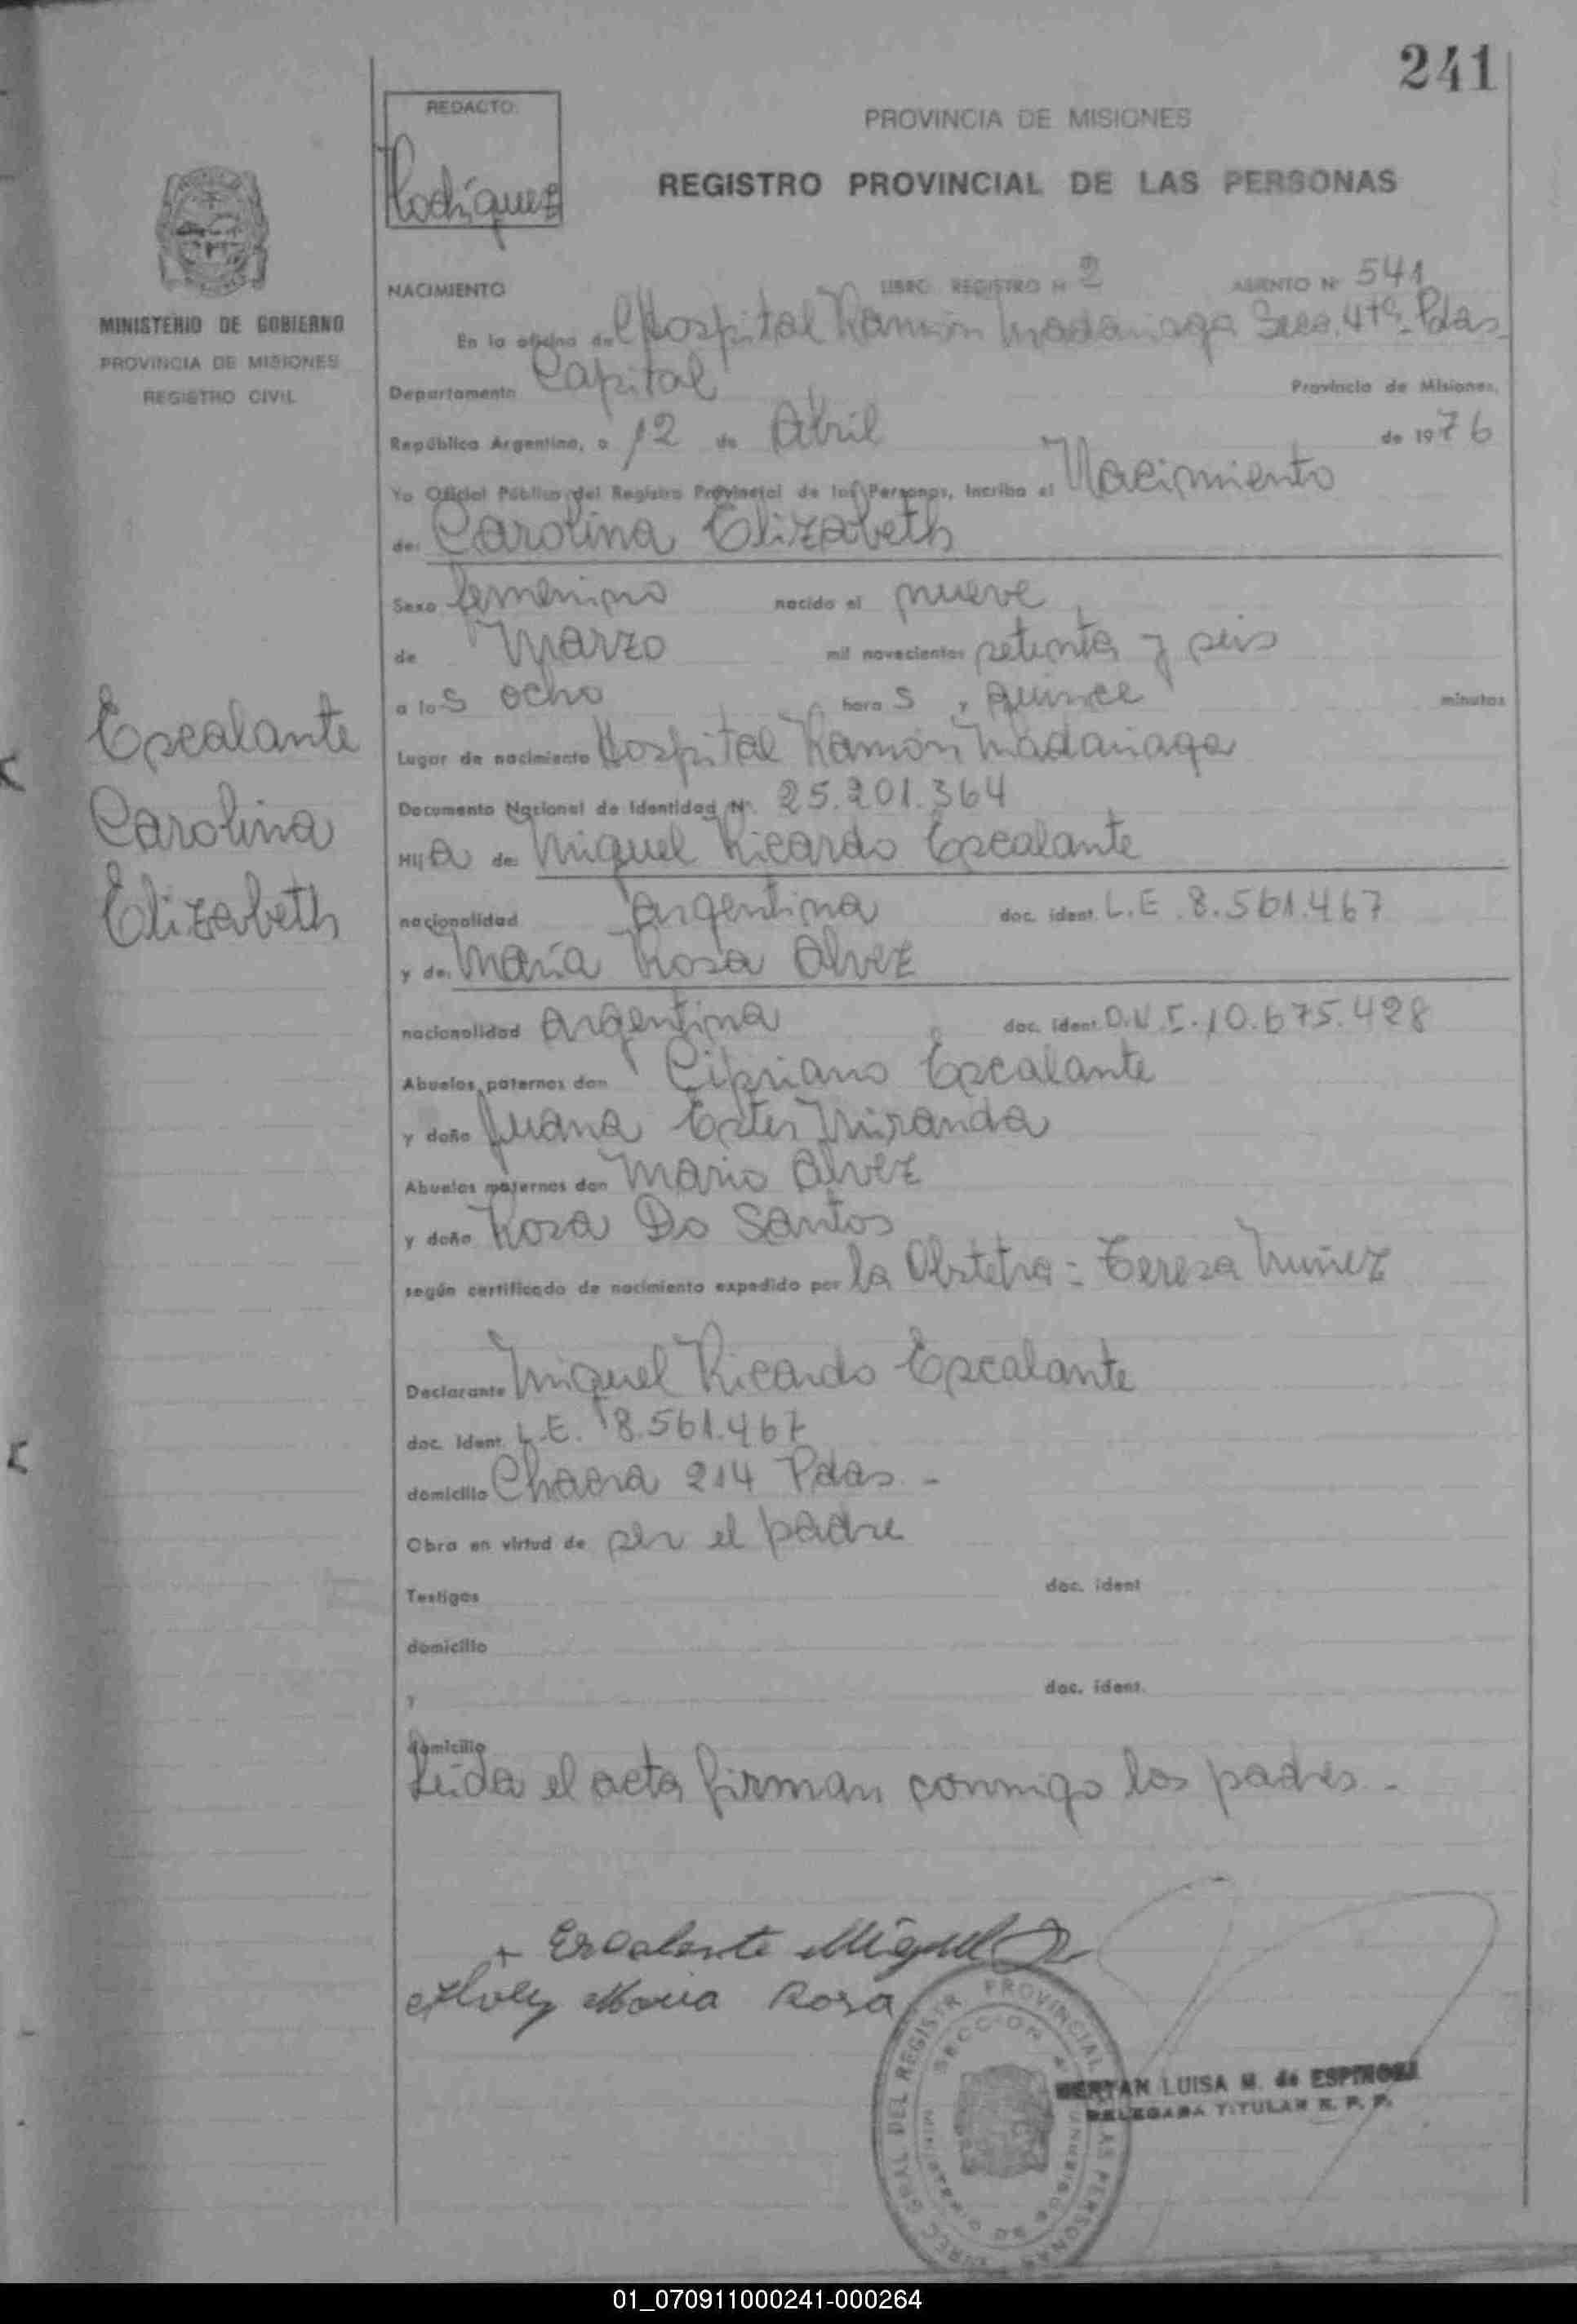 241
REDACTO:
Rodríguez
PROVINCIA DE MISIONES
REGISTRO PROVINCIAL DE LAS PERSONAS
MINISTERIO DE GOBIERNO
PROVINCIA DE MISIONES
REGISTRO CIVIL
NACIMIENTO LIBRO REGISTRO Nº 2 ASIENTO Nº 541
En la oficina del Hospital Ramón Madariaga Secc. 4ta. Pdas
Departamento Capital Provincia de Misiones,
República Argentina, a 12 de Abril de 1976
Yo Oficial Público del Registro Provincial de las Personas, Incribo el Nacimiento
de: Carolina Elizabeth
Sexo femenino nacido el nueve
de Marzo mil novecientos setenta y seis
a las ocho horas y quince minutos
Lugar de nacimiento Hospital Ramón Madariaga
Documento Nacional de Identidad Nº. 25.201.364
Hija de: Miguel Ricardo Escalante
nacionalidad argentina doc. ident. L.E. 8.561.467
y de: María Rosa Alvez
nacionalidad argentina doc. ident. D.N.I. 10.675.428
Abuelos paternos don Cipriano Escalante
y doña Juana Ester Miranda
Abuelos maternos don Mario Alvez
y doña Rosa Do Santos
según certificado de nacimiento expedido por la Obstetra = Teresa Nuñez
Declarante Miguel Ricardo Escalante
doc. ident. L.E. 8.561.467
domicilio Chacra 214 Pdas. -
Obra en virtud de ser el padre
Testigos doc. ident
domicilio
y doc. ident.
domicilio
Leída el acta firman conmigo los padres. -
Escalante
Carolina
Elizabeth
+ Escalente Miguel R
Alvez Maria Rosa
DIREC. GRAL. DEL REGISTR. PROVINCIAL LAS PERSONAS
SECCION 4
LUISA M. de ESPINOSA
DELEGADA TITULAR R. P. P.
01_070911000241-000264